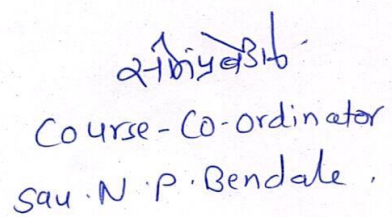 Course-Co-ordinator
Sau. N. P. Bendale.